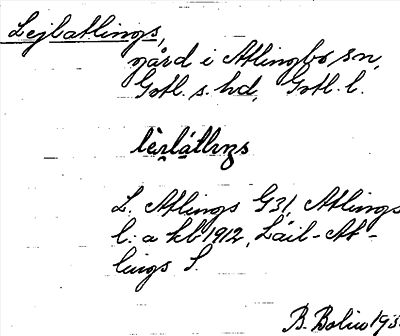 Lejlatlings,
gård i Atlingbo sn,
Gotl. s. hd, Gotl. l.
L. Atlings G31, Atlings
l: a kb 1912, Läil-At-
lings S.
B. Bolin 193